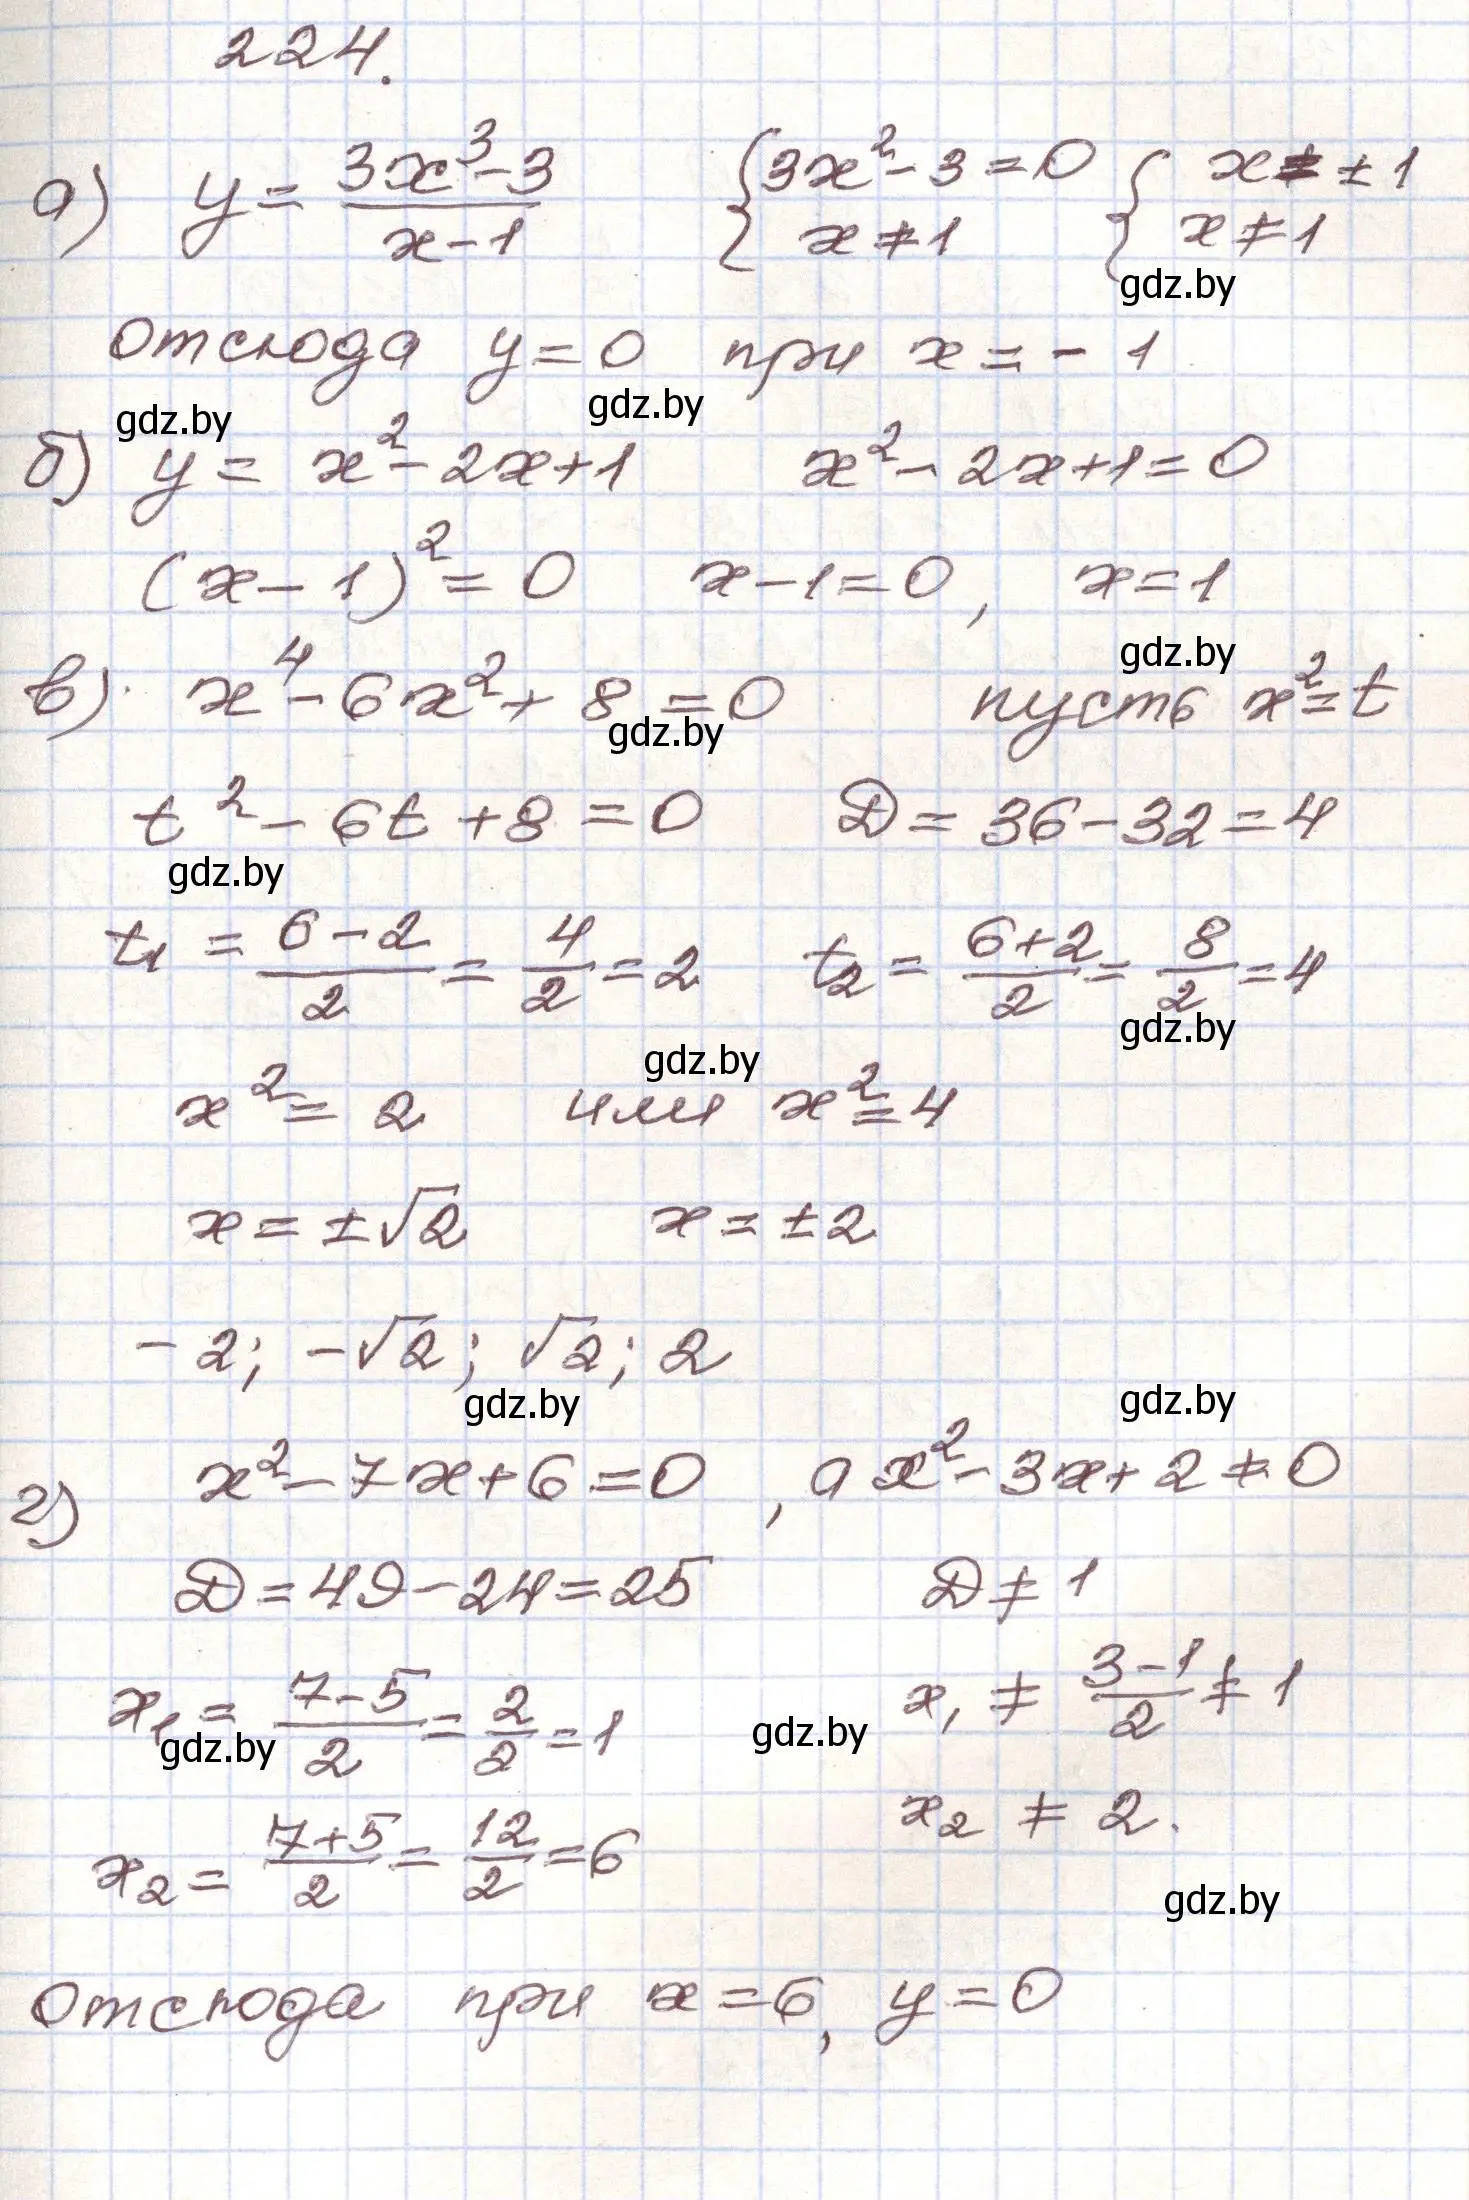 224.
а) y = \frac{3x^3-3}{x-1} { 3x^2-3=0 x≠1 { x=±1 x≠1
gdz.by
отсюда y=0 при x=-1
gdz.by gdz.by
б) y = x^2-2x+1 x^2-2x+1=0
(x-1)^2=0 x-1=0, x=1
gdz.by
в) x^4-6x^2+8=0 пусть x^2=t
gdz.by
t^2-6t+8=0 D=36-32=4
gdz.by
t_1 = \frac{6-2}{2} = \frac{4}{2} = 2 t_2 = \frac{6+2}{2} = \frac{8}{2} = 4
gdz.by
gdz.by
x^2=2 или x^2=4
x=±√2 x=±2
-2; -√2; √2; 2
gdz.by gdz.by
г) x^2-7x+6=0, а x^2-3x+2≠0
D=49-24=25 D≠1
x_1 = \frac{7-5}{2} = \frac{2}{2} = 1 x_1 ≠ \frac{3-1}{2} ≠ 1
gdz.by gdz.by
x_2 = \frac{7+5}{2} = \frac{12}{2} = 6 x_2 ≠ 2.
gdz.by
отсюда при x=6, y=0